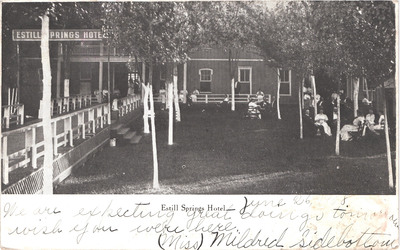 ESTILL SPRINGS HOTEL
Estill Springs Hotel
June 26
We are expecting great doings tomorrow
wish you were here.
(Miss) Mildred Sidebottom